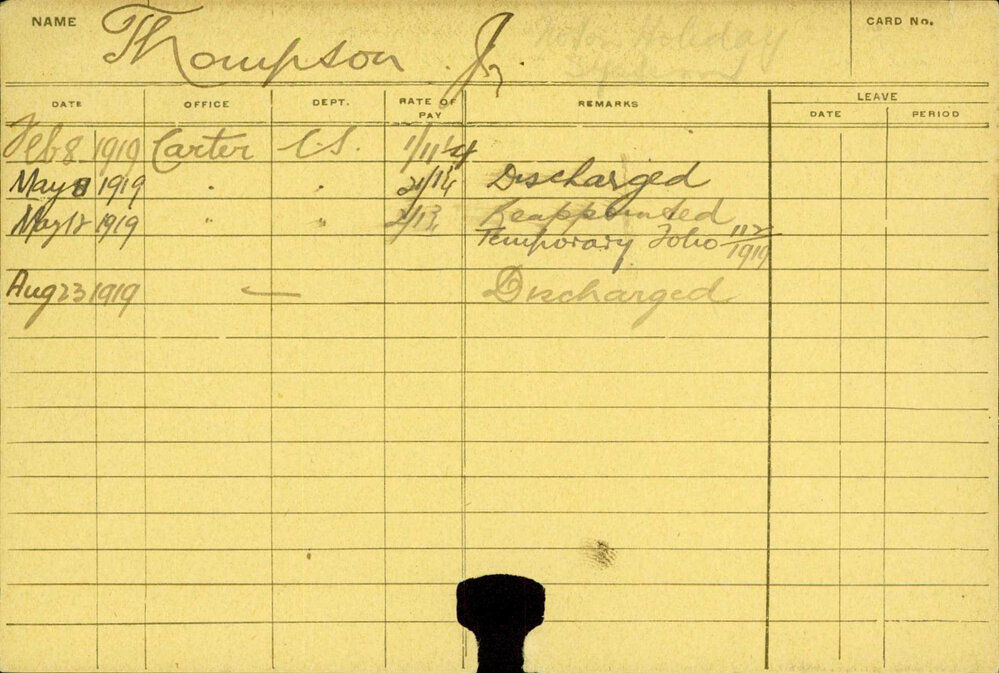 NAME Thompson Jr. Holiday CARD No.
DATE OFFICE DEPT. RATE OF PAY REMARKS LEAVE
DATE PERIOD
Feb 8 1919 Carter C.S. 1/11¼
May 8 1919 " " Discharged
May 12 1919 " " 2/1 Reappointed
Temporary Folio 112/1919
Aug 23 1919 — Discharged